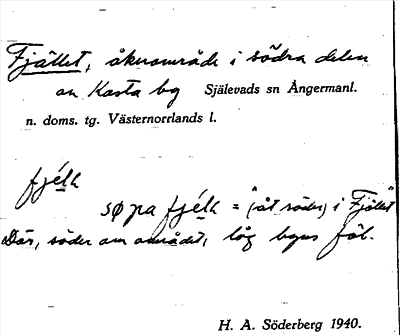 Fjället, åkerområde i södra delen
av Kasta by Själevads sn Ångermanl.
n. doms. tg. Västernorrlands l.
fjélḷ
söpa fjélḷ = "(åt söder) i Fjället"
Där, söder om området, låg byns fäb.
H. A. Söderberg 1940.